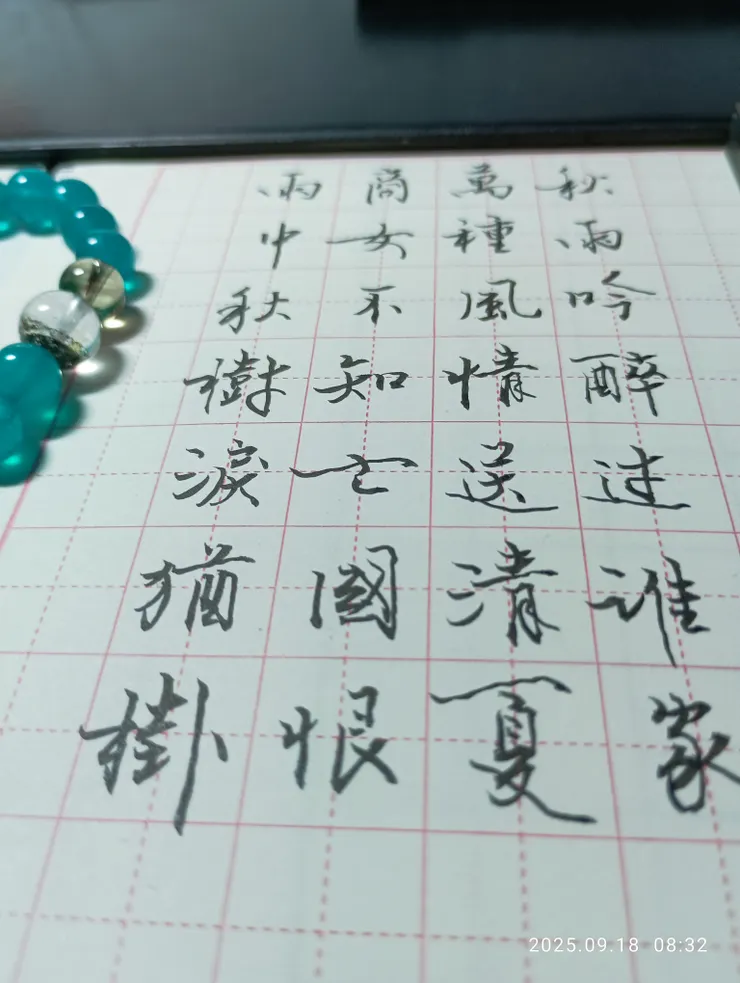 秋雨吟醉过谁家
萬種風情送清夏
商女不知亡國恨
雨中秋樹淚猶掛
2025.09.18 08:32